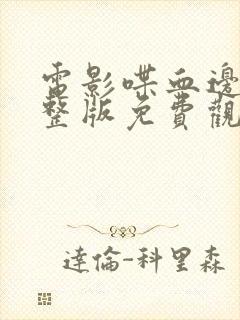 電影喋血邊
整版免費觀
達倫-科里森